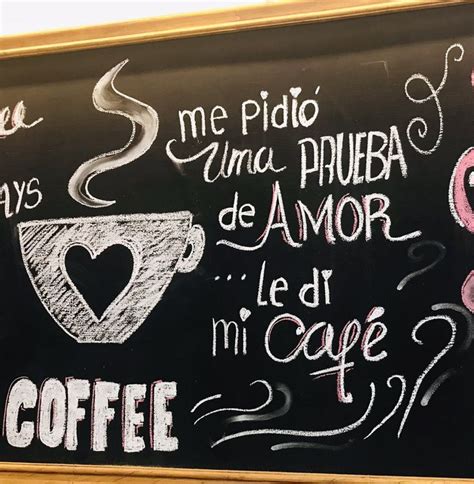 me Pidió
una PRUEBA
de AMOR
... Le di
mi Café
COFFEE